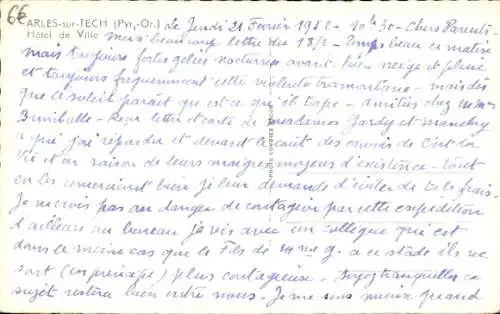 6€
ARLES-sur-TECH (Pyr.-Or.) Le Jeudi 21 Février 1952 - 10h30 - Chers Parents -
Hôtel de Ville merci beaucoup lettre du 18/2 - Temps beau ce matin
mais toujours fortes gelées nocturnes avant bien neigé et pleine
et toujours fréquemment cette violente tramontane - mais dès
que le soleil paraît que est ce qu'il tape - amitiés chez Mme
- leur lettre et carte de mesdames Gardy et
à qui j'ai répondu et devant le coût des envois de
vie et en raison de leurs maigres moyens d'existence - tout
en les remerciant bien je leur demande d'éviter de tels frais -
Je ne crois pas au danger de contagion par cette expédition
d'ailleurs au bureau je vis avec un collègue qui est
dans le même cas que le fils de Mme G. a ce stade ils ne
sont (en principe) plus contagieux - Soyez tranquilles ce
sujet restera bien entre nous - Je me sens mieux quand
PHOTO COMBIER